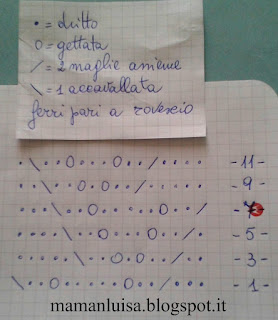 • = dritto
O = gettata
/ = 2 maglie assieme
\ = 1 accavallata
ferri pari a rovescio
. \ . . O . . . O . . / . . . . -11-
. . \ . O . . . O . / . . . . . -9-
. . . \ O . . . O / . . . . . / -7-
. . . . \ O . . . O . . / -5-
. . . . \ . . O O . . / . -3-
\ . . O . . . . . O . . / . . . -1-
mamanluisa.blogspot.it